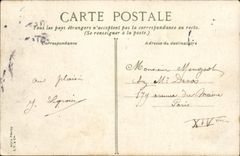 CARTE POSTALE
Tous les pays étrangers n'acceptent pas la correspondance au recto.
(Se renseigner à la poste.)
Correspondance
Adresse du destinataire
au plaisir
Monsieur
chez Mr
179 avenue du Maine
Paris
XIVe